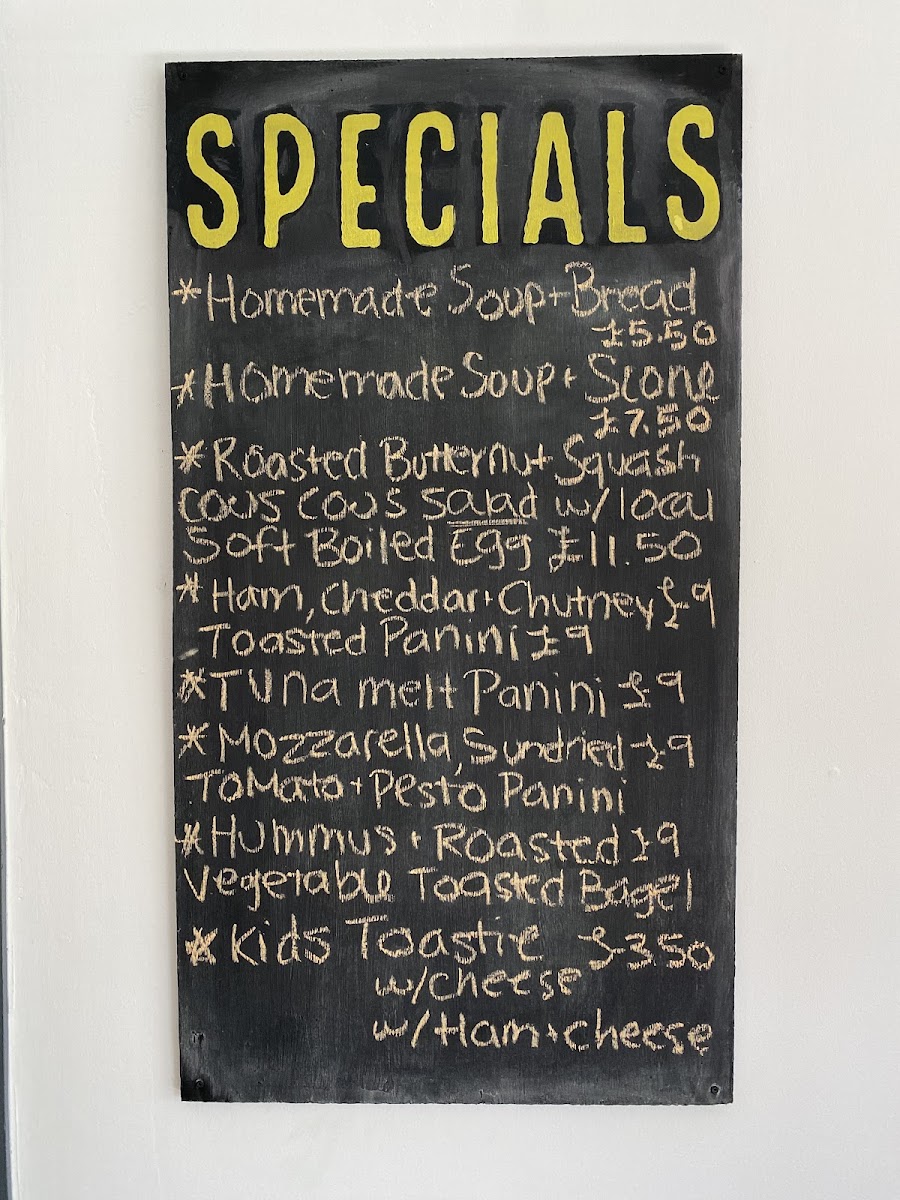 SPECIALS
*Homemade Soup+Bread
£5.50
*Homemade Soup+ Scone
£7.50
*Roasted Butternut Squash
Cous Cous Salad w/local
Soft Boiled Egg £11.50
*Ham, Cheddar+Chutney £9
Toasted Panini £9
*Tuna melt Panini £9
*Mozzarella, Sundried £9
Tomato+Pesto Panini
*Hummus + Roasted £9
Vegetable Toasted Bagel
*Kids Toastie £3.50
w/cheese
w/Ham+cheese